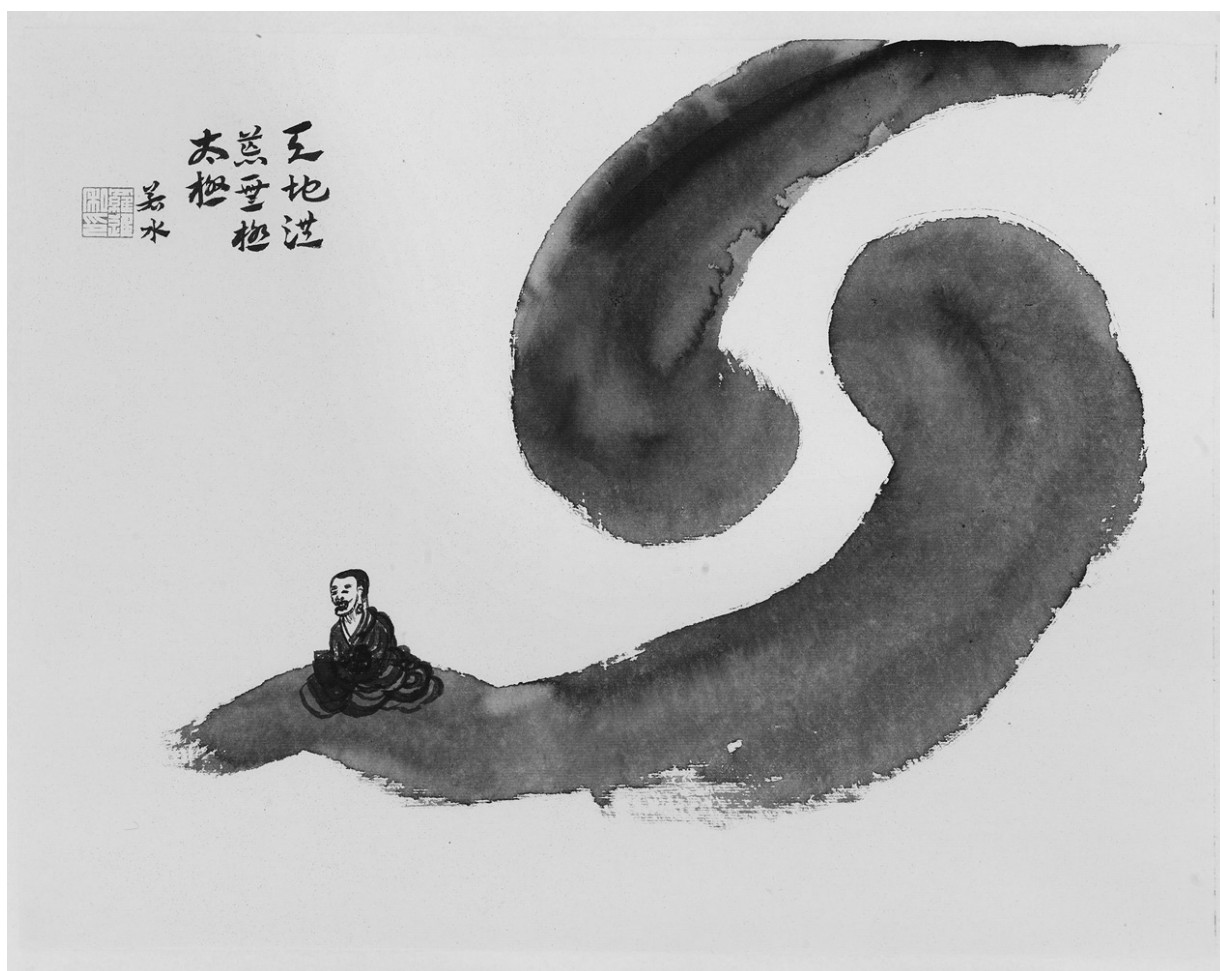 天地洪
荒無極
太極
若水